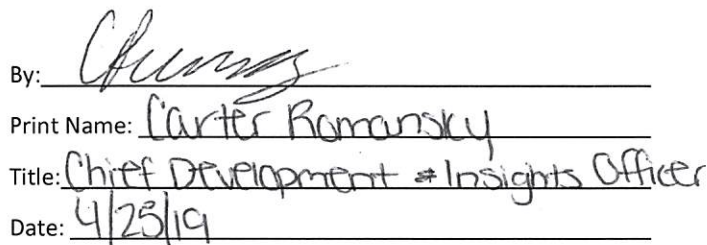 By:
Print Name: Carter Romansky
Title: Chief Development & Insights Officer
Date: 4/25/19